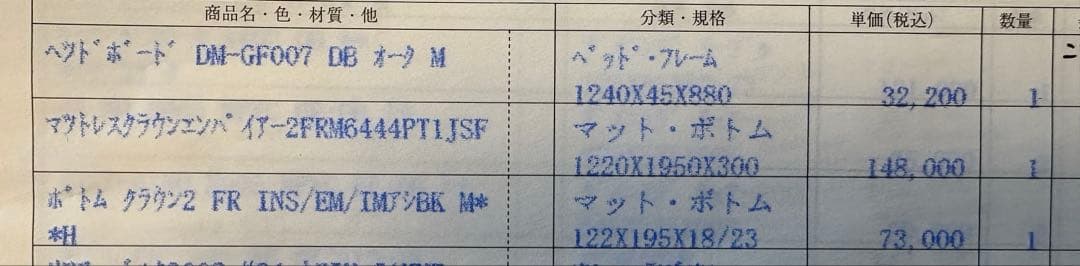 商品名・色・材質・他 分類・規格 単価(税込) 数量
ヘツドボード DM-GF007 DB オーク M ベッド・フレーム
1240X45X880 32,200 1
マツトレスクラウンエンパイアー2FRM6444PT1JSF マット・ボトム
1220X1950X300 148,000 1
ボトム クラウン2 FR INS/EM/IMアシBK M* マット・ボトム
*H 122X195X18/23 73,000 1